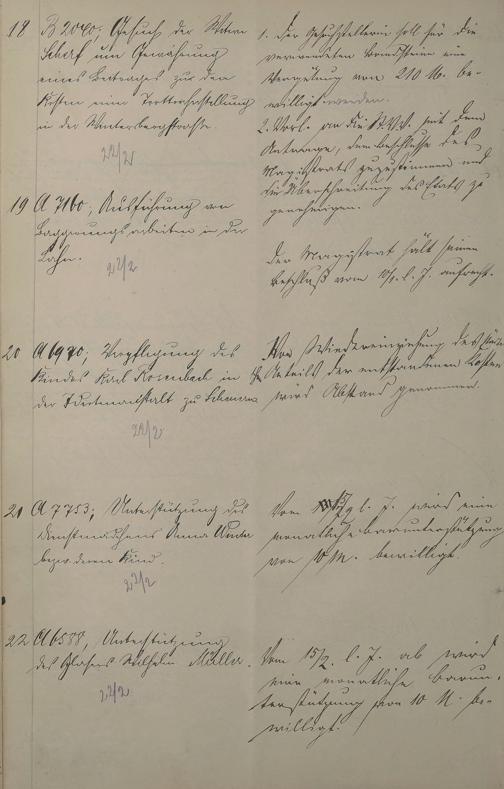 18 B 2040. Gesuch der Witwe
Scherf um Gewährung
eines Beitrages zu den
Kosten einer Trottoirherstellung
in der Wintersbergstrasse.
22/2
1. Der Gesuchstellerin soll für die
verwendeten Bordsteine eine
Vergütung von 210 M. be-
willigt werden.
2. Vorl. an die St.V.V. mit dem
Antrage, dem Beschlusse des
Magistrats zuzustimmen und
die Überschreitung des Etats zu
genehmigen.
19 A 7160; Ausführung von
Baggerungsarbeiten in der
Lahn.
22/2
Der Magistrat hält seinen
Beschluß vom l. J. aufrecht.
20 A 6970; Verpflegung des
Kindes Karl Rosenbach in
der Idiotenanstalt zu Scheuern
22/2
Von Wiedereinziehung des
Anteils der entstandenen Kosten
wird Abstand genommen.
21 A 7753; Unterstützung des
Dienstmädchens Anna
bezw. deren Kind.
22/2
Vom l. J. wird eine
monatliche Barunterstützung
von 10 M. bewilligt.
22 A 6588, Unterstützung
des Glasers Wilhelm Müller.
22/2
Vom 15/2. l. J. ab wird
eine monatliche Barun-
terstützung von 10 M. be-
willigt.